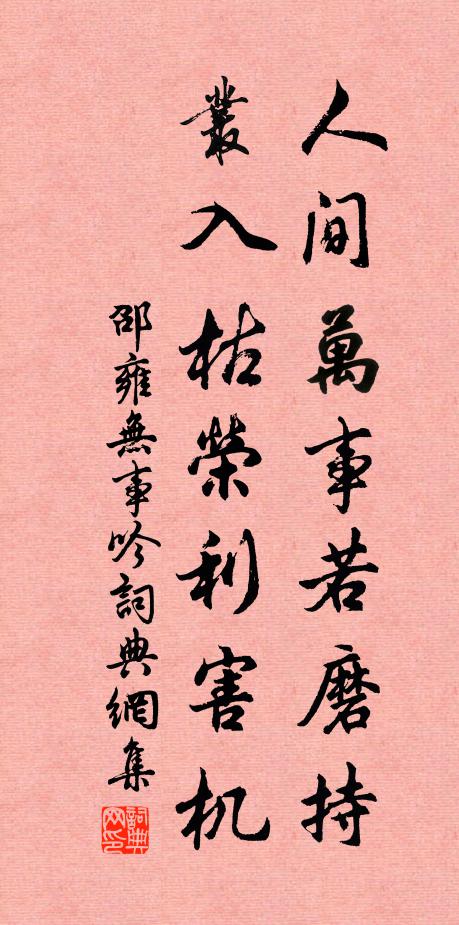 人間萬事若磨持
叢入枯榮利害机
邵雍無事吟詞典網集
詞典网印